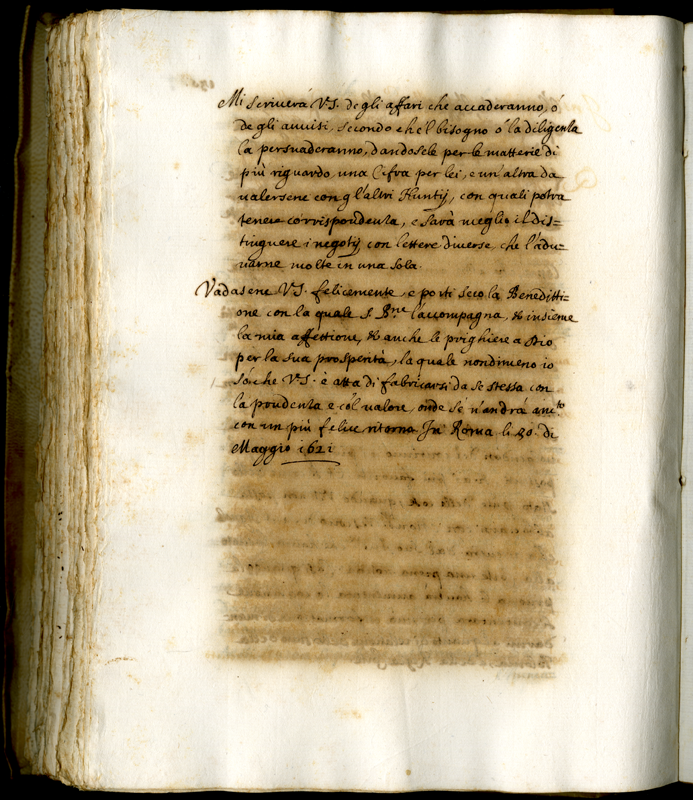 Mi scriverà V.S. degli affari che accaderanno, ó
de gli auuisi, secondo che'l bisogno ó la diligenza
la persuaderanno, dandosele per le matterie di
più riguardo una Cifra per lei, e un'altra da
ualersene con gl'altri Nuntij, con quali potrà
tenere corrispondenza, e sarà meglio il dis=
tinguere i negotij con lettere diuerse, che l'adu=
narne molte in una sola.
Vadasene V.S. felicemente, e porti seco la Beneditti=
one con la quale S. B.ne l'accompagna, & insieme
la mia affettione, & anche le prighiere a Dio
per la sua prosperità, la quale nondimeno io
só che V.S. è atta di fabricarsi da se stessa con
la prudenza e col ualore, onde se n'andrà
con un più felice ritorno In Roma li 30. di
Maggio 1621